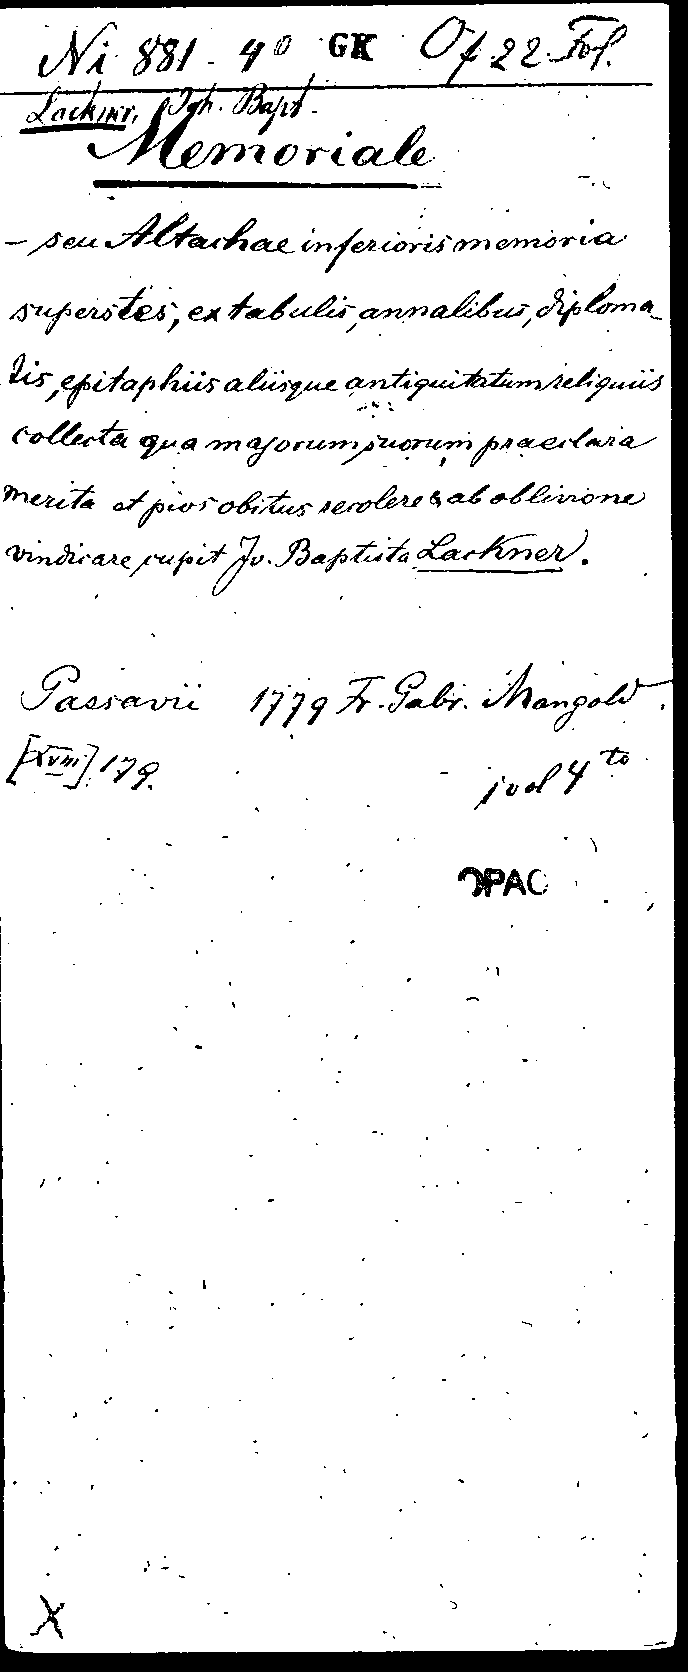 Ni 881 - 4° GK Of 22 Fol.
Lackner, Joh. Bapt.
Memoriale
- seu Altachae inferioris memoria
superstes, ex tabulis, annalibus, diploma-
tis, epitaphiis aliisque antiquitatum reliquiis
collecta qua majorum suorum praeclara
merita et pios obitus recolere & ab oblivione
vindicare cupit Jo. Baptista Lackner.
Passavii 1779 Fr. Gabr. Mangold.
[XVIII] 179. 1 vol 4to
OPAC
X